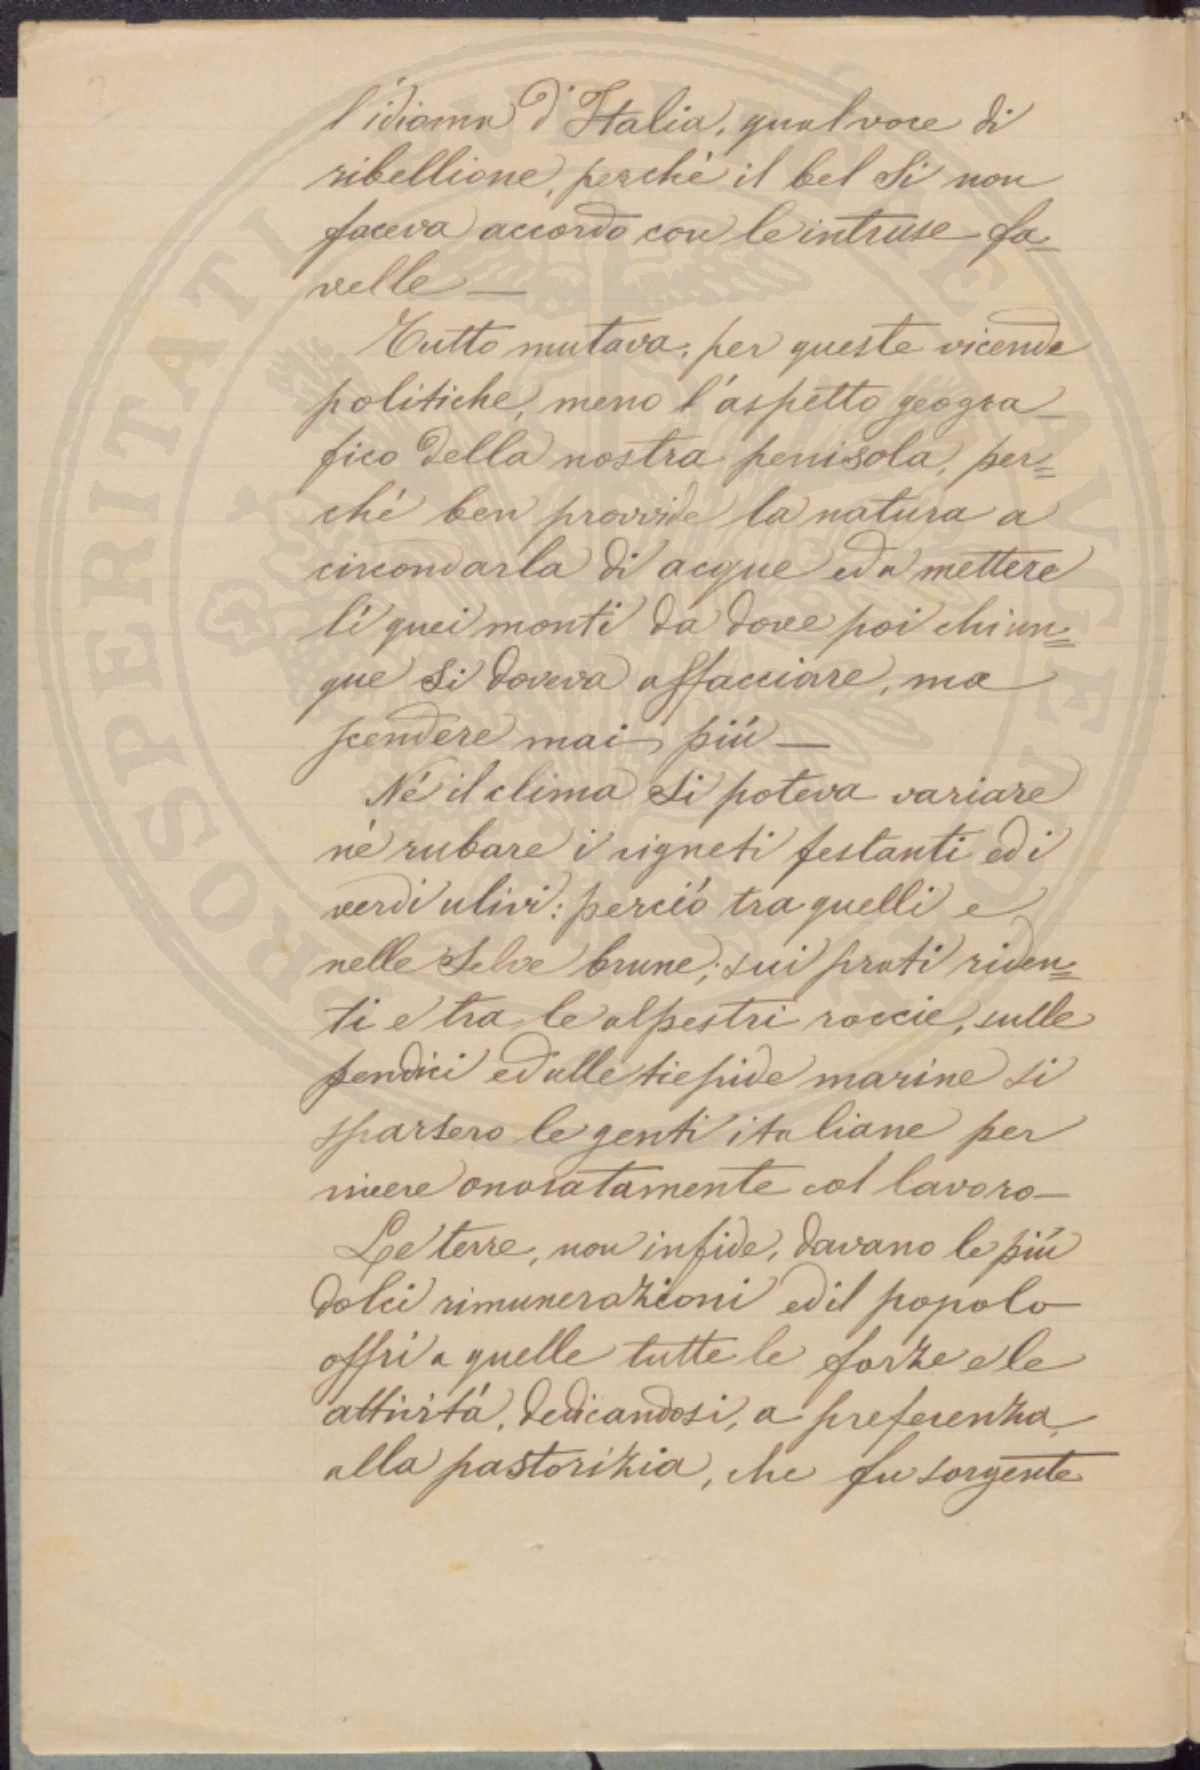 l'idioma d'Italia, qual voce di
ribellione, perchè il bel Si non
faceva accordo con le intruse fa_
velle —
Tutto mutava, per queste vicende
politiche, meno l'aspetto geogra_
fico della nostra penisola, per=
chè ben provvide la natura a
circondarla di acque ed a mettere
lì quei monti da dove poi chiun=
que si doveva affacciare, ma
scendere mai più —
Nè il clima si poteva variare
nè rubare i vigneti festanti ed i
verdi ulivi: perciò tra quelli e
nelle selve brune; sui prati riden=
ti e tra le alpestri roccie, sulle
pendici ed alle tiepide marine si
sparsero le genti italiane per
vivere onoratamente col lavoro —
Le terre, non infide, davano le più
dolci rimunerazioni ed il popolo
offrì a quelle tutte le forze e le
attività, dedicandosi, a preferenza,
alla pastorizia, che fu sorgente
PROSPERITATI PVBLICAE AVGENDAE